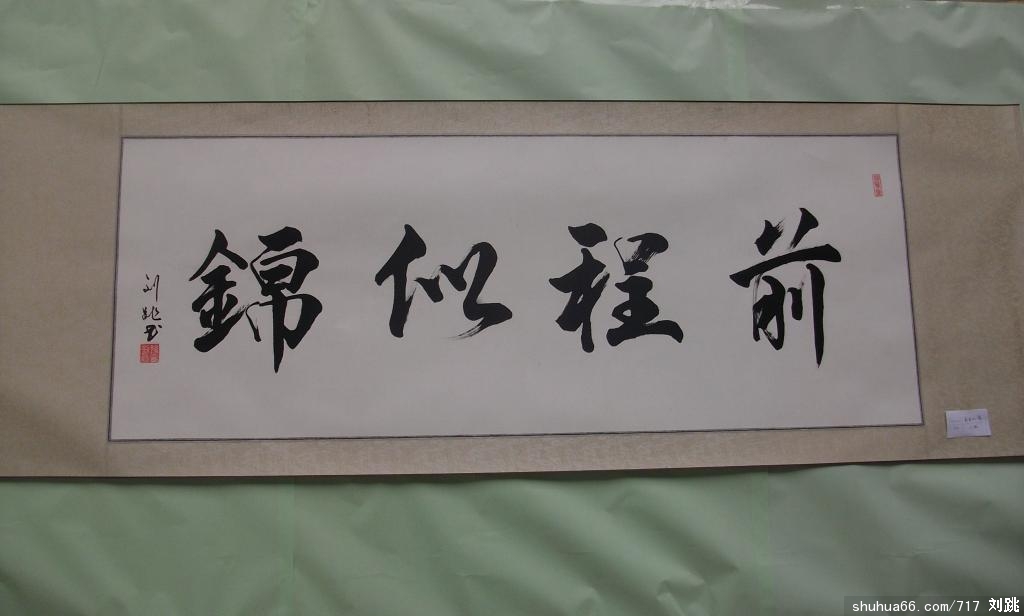 前程似錦
刘跳书
shuhua66.com/717 刘跳